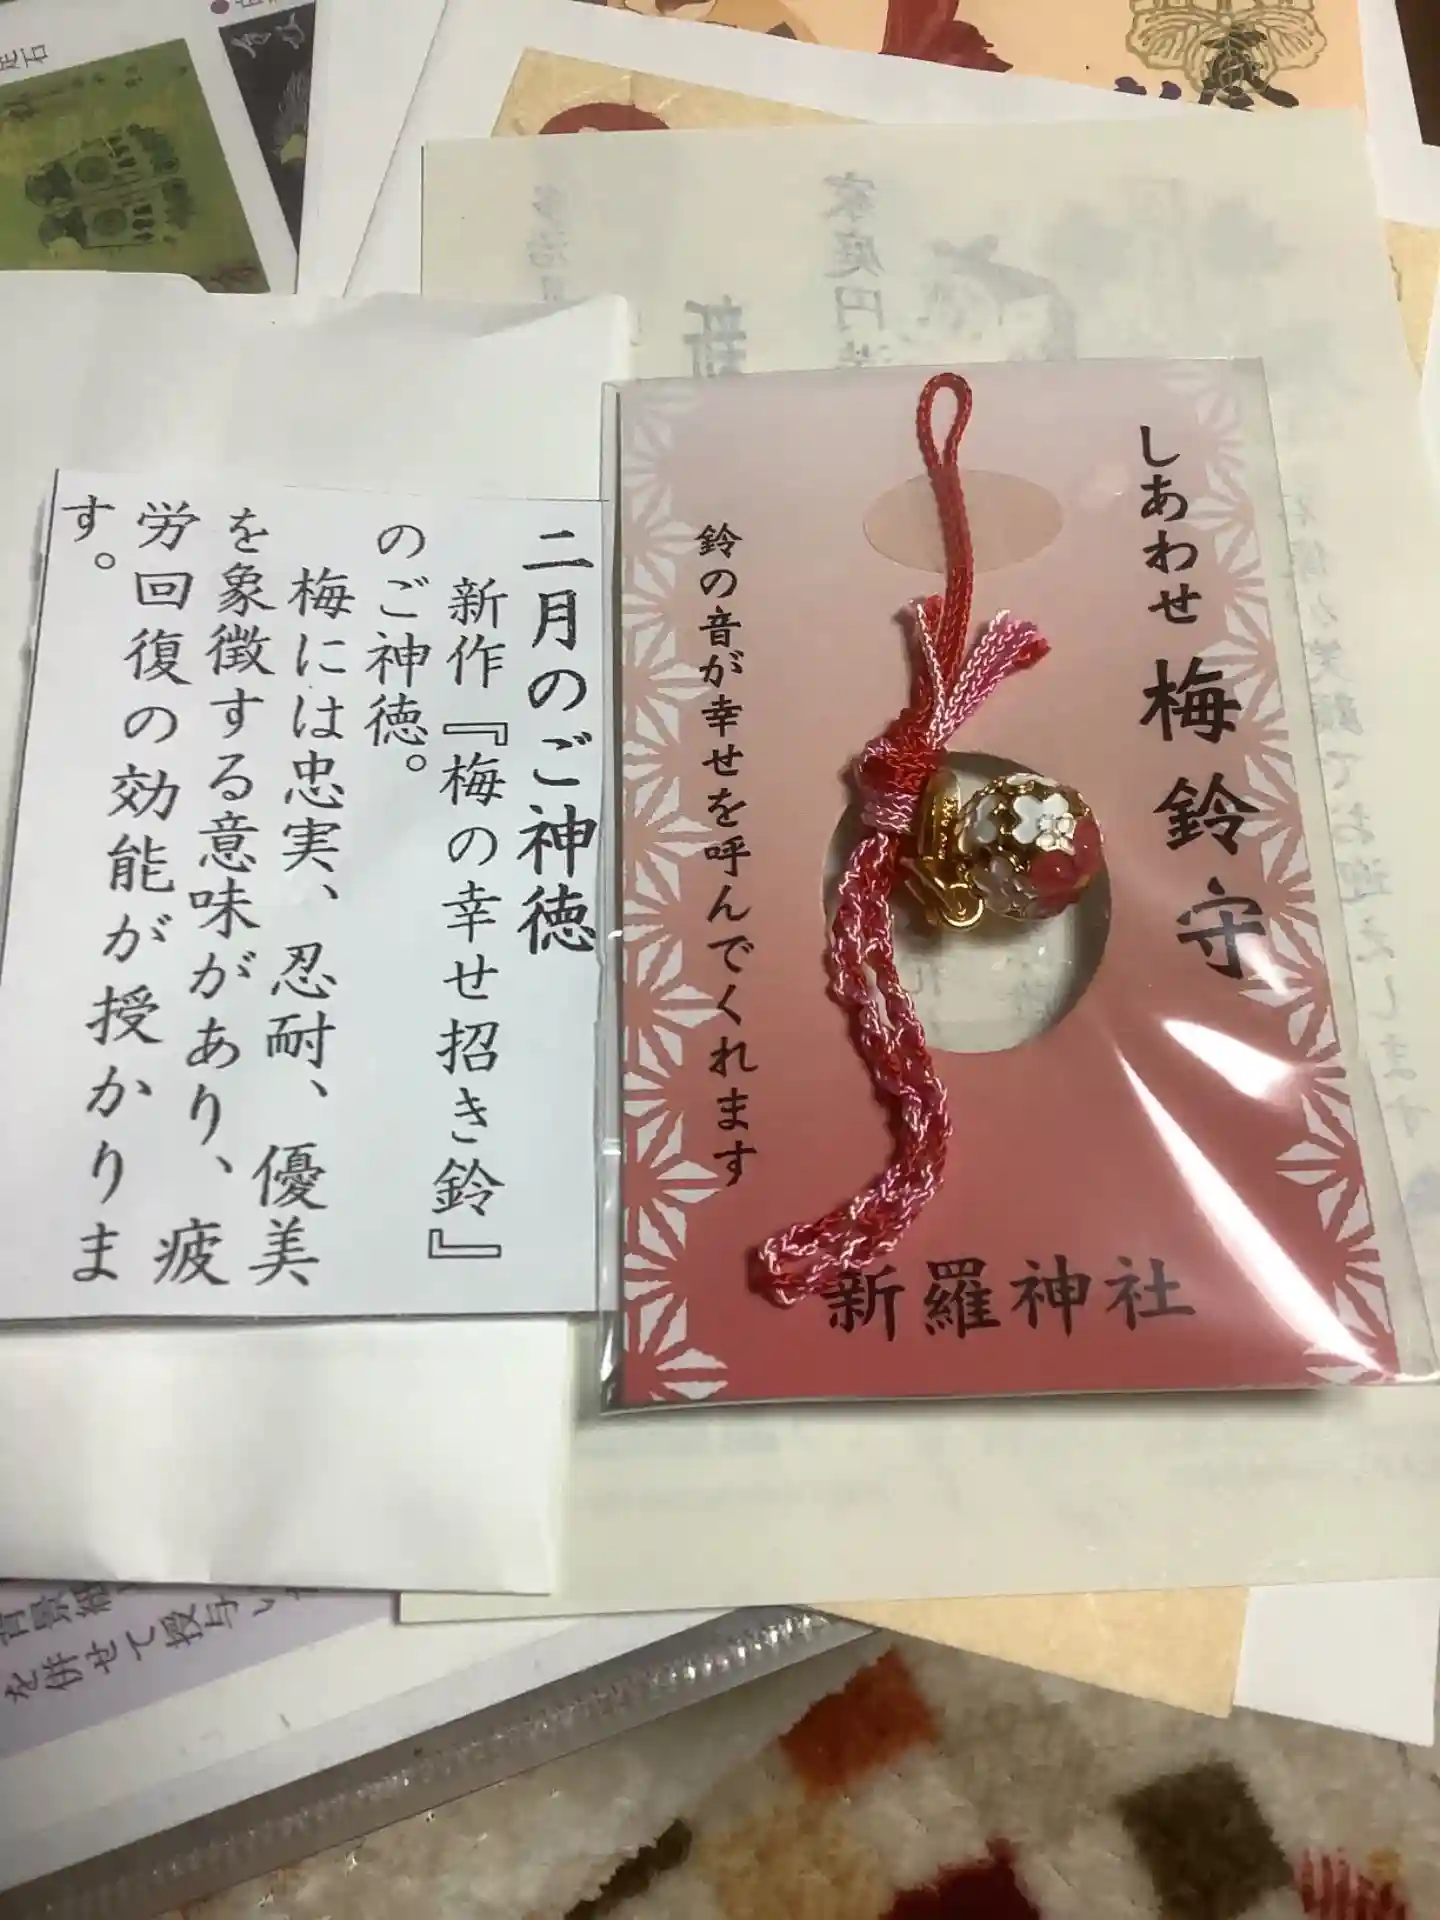 しあわせ 梅鈴守
鈴の音が幸せを呼んでくれます
新羅神社
二月のご神徳
新作『梅の幸せ招き鈴』
のご神徳。
梅には忠実、忍耐、優美
を象徴する意味があり、疲
労回復の効能が授かりま
す。
家庭円
新
を併せて授与い